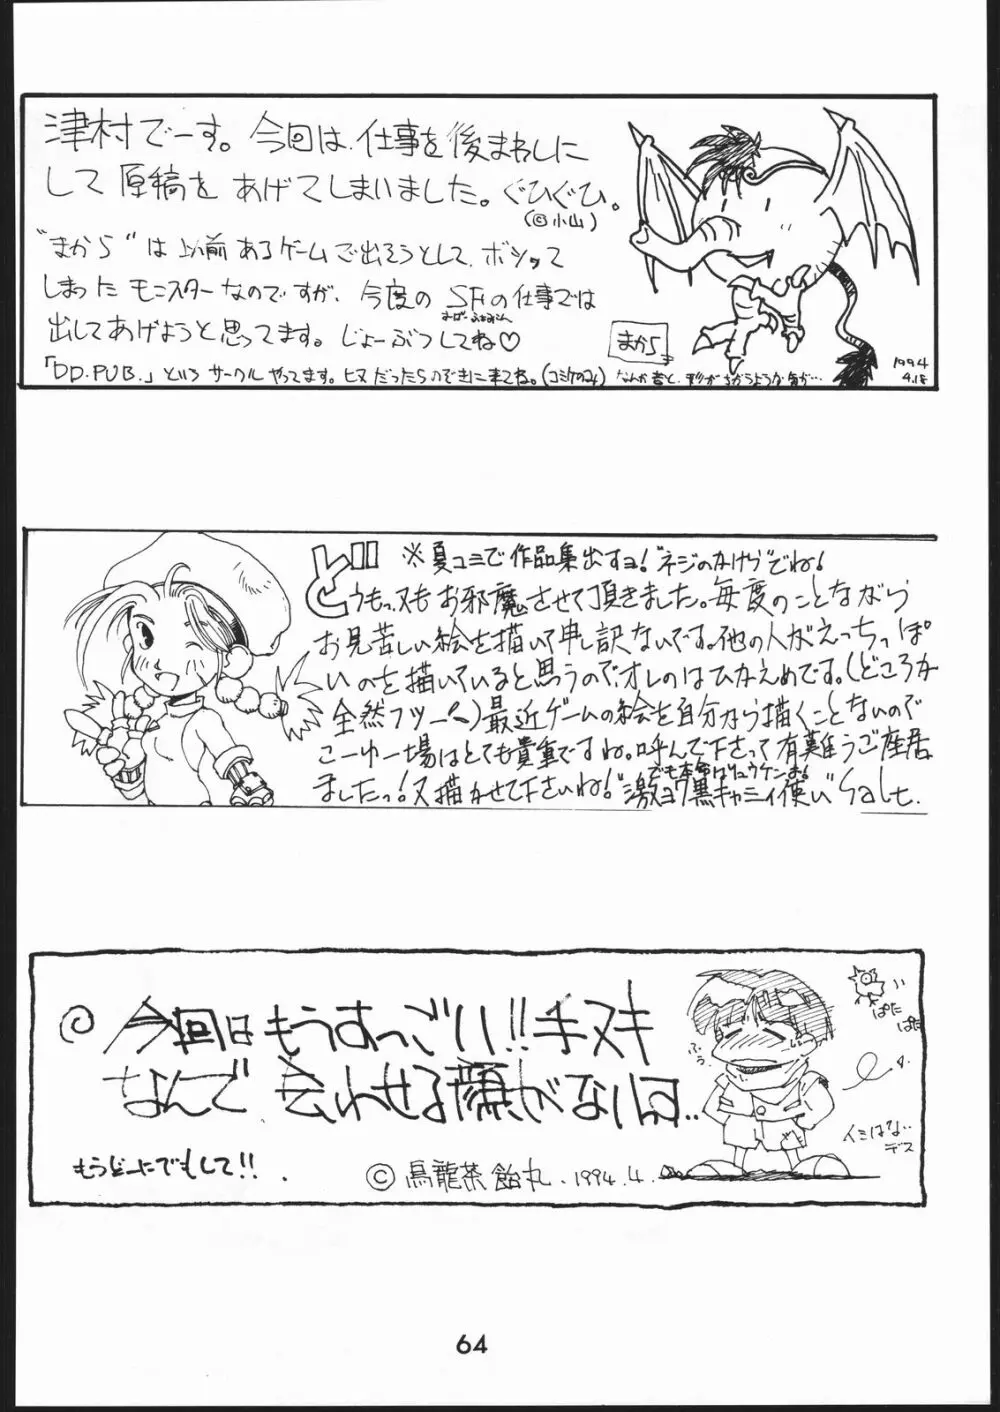 津村でーす。今回は、仕事を後まわしに
して原稿を あげてしまいました。ぐひぐひ。
(©小山)
"まから"は 以前 あるゲームで出そうとして、ボツッて
しまった モンスターなのですが、今度の SFCの仕事では
すーぱーふぁみこん
出してあげようと思ってます。じょーぶつしてね♡
「DD.PUB.」という サークル やってます。ヒマ だったら 来てね。(コミケのみ) なんか昔と、形がちがうような気が…
まから
1994
4.18
※夏コミで作品集出すヨ!"ネジのかけら"でね!
どうもっ、又も お邪魔させて頂きました。毎度のことながら
お見苦しい絵を描いて申し訳ないです。他の人がえっちっぽ
いのを描いていると思うので、オレのはひかえめです。(どころか
全然フツーへ)最近ゲームの絵を自分から描くことないので
こーゆー場はとても貴重ですね。呼んで下さって有難うご座居
でも本命はリュウケンよ!
ましたっ!又描かせて下さいね!"激ヨワ黒キャミィ使い"Salt.
今回はもうすっごい!!手ヌキ
なんで 会わせる顔がないな..
もうどーにでもして!!.
© 烏龍茶 飴丸. 1994.4.
ふぅ
ぱた
ぱた
イミはない
デス
64